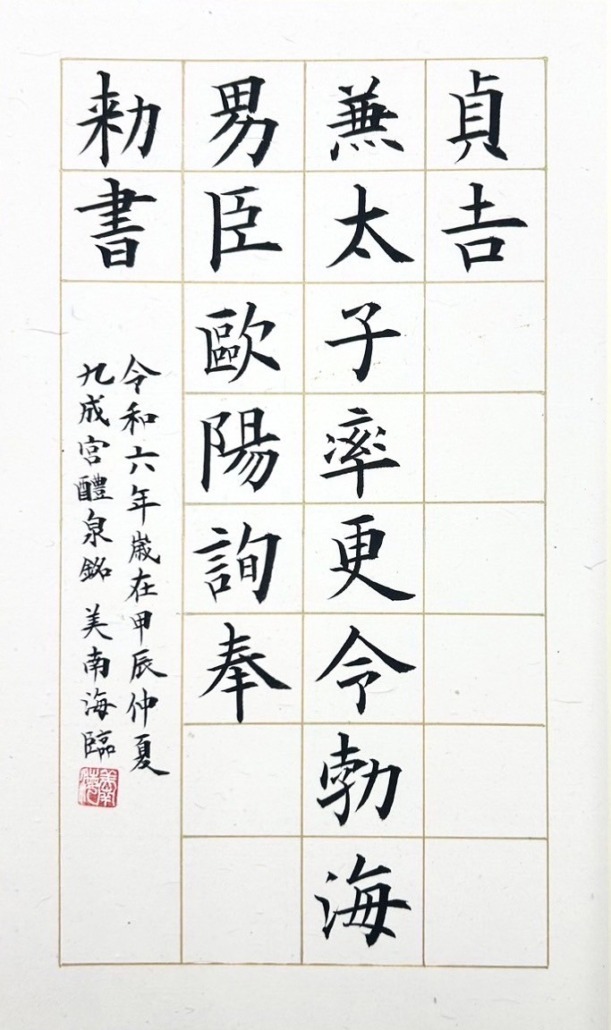 貞吉
兼太子率更令勃海
男臣歐陽詢奉
勅書
令和六年歳在甲辰仲夏
九成宮醴泉銘 美南海臨